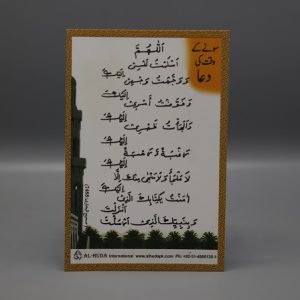 سونے کے
وقت کی
دعا
اَللّٰهُمَّ
اَسْلَمْتُ نَفْسِىْ
اِلَيْكَ
وَ وَجَّهْتُ وَجْهِىْ
اِلَيْكَ
وَفَوَّضْتُ اَمْرِىْ
اِلَيْكَ
وَاَلْجَاْتُ ظَهْرِىْ
اِلَيْكَ
رَغْبَةً وَّ رَهْبَةً
اِلَيْكَ
لَا مَلْجَاَ وَلَا مَنْجٰى مِنْكَ اِلَّا
اِلَيْكَ
اٰمَنْتُ بِكِتَابِكَ الَّذِىْ
اَنْزَلْتَ
وَ بِنَبِيِّكَ الَّذِىْ اَرْسَلْتَ
AL-HUDA International www.alhudapk.com